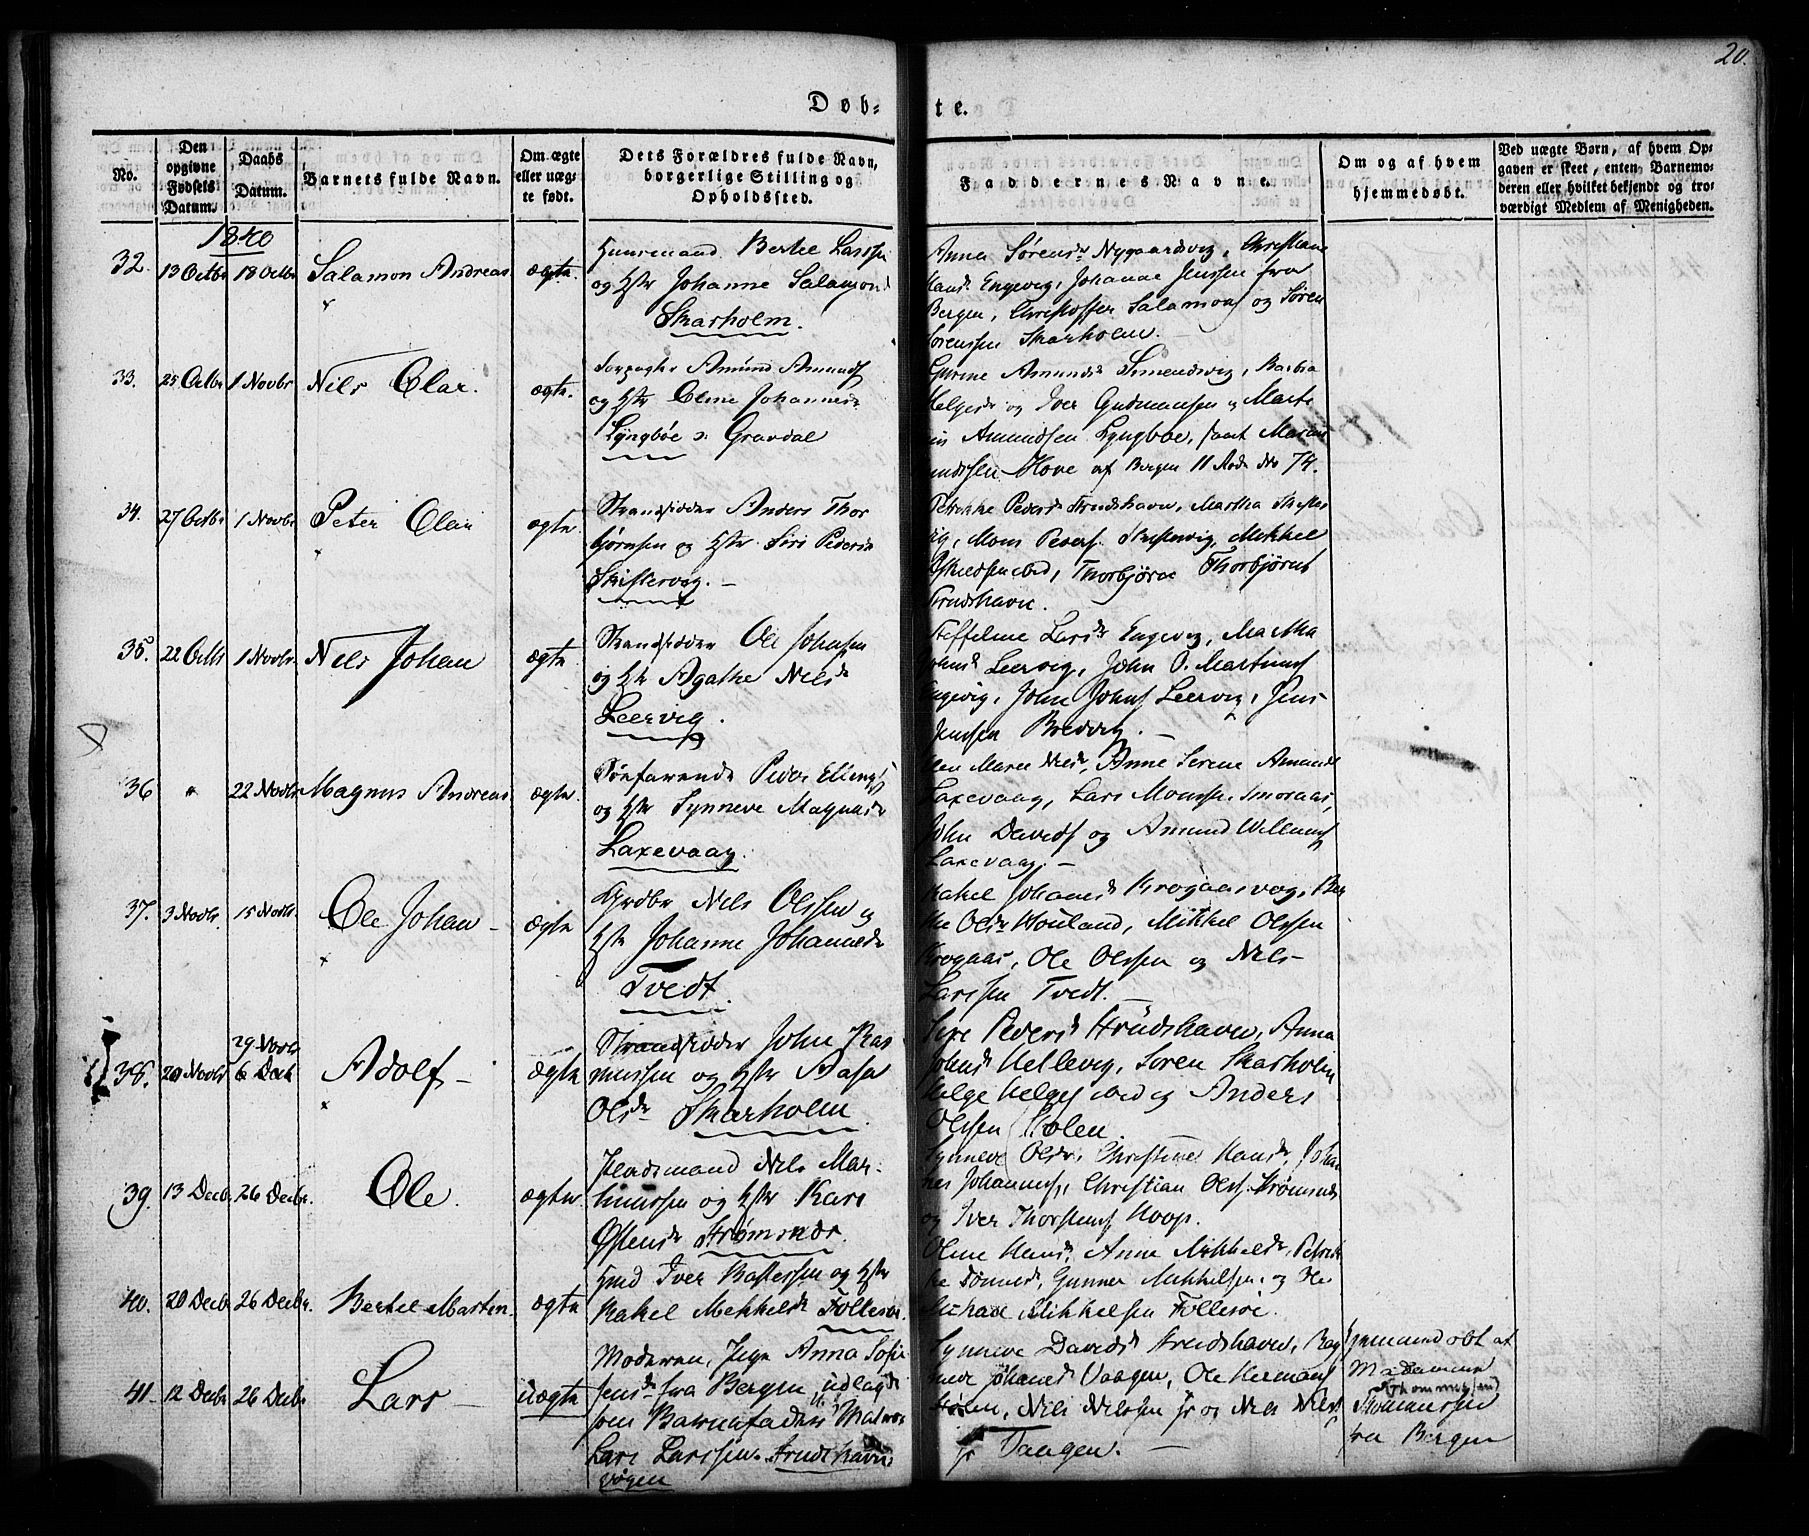 20.
Døb-
te.
No.
Den opgivne Fødsels Datum.
Daabs Datum.
Barnets fulde Navn.
Om ægte eller uægte født.
Dets Forældres fulde Navn, borgerlige Stilling og Opholdssted.
Faddernes Navne.
Om og af hvem hjemmedøbt.
Ved uægte Børn, af hvem Opgaven er skeet, enten Barnemoderen eller hvilket bekjendt og troværdigt Medlem af Menigheden.
1840
32. 13 Octbr 18 Octbr Salamon Andreas ægte
Huusmand Bertel Larssen
og Hstr Johanne Salamons
Skarholm.
Anna Sørensdr Nygaardsvig, Christiane
Hansd Engevig, Johanne Jenssen fra
Bergen, Christoffer Salamons og Søren
Sørenssen Skarholm.
33. 25 Octbr 1 Novbr Nils Olai. ægte.
Amund Amunds
og Hstr Oline Johannesdr
Lyngbøe v: Gravdal
Gurine Amundsd Simensvig, Barbra
Helgesdr og Iver Gudmunsen og Marte
Amundsen Lyngbøe, samt
Hove af Bergen 11 Rode No 74.
34. 27 Octbr 1 Novbr Peter Olai ægte
Strandsidder Anders Thor
bjørnsen og Hstr. Siri Pedersdr
Skiftesvog. –
Petrikke Pedersd Strudshavn, Martha
Mons Peders. Skiftesvig, Mikkel
ibid, Thorbjørne Thorbjørns
Strudshavn.
35. 22 Octbr 1 Novbr. Nils Johan ægte
Strandsidder Ole Johnsen
og Hstr Agathe Nilsdr
Leervig.
Steffeline Larsdr Engevig, Martha
Johnsd Leervig, John O. Martinus
Engevig, John Johns Leervig, Jens
Jenssen Bredvig. –
36 " 22 Novbr Magnus Andreas ægte
Søefarende Peder Ellings
og Hstr Synneve Magnusdr
Laxevaag.
Elen Maria Nielsd, Anne Serine Amunds
Laxevaag, Lars Monssen Smoraas,
John Davids og Amund Willums
Laxevaag. –
37. 3 Novbr. 15 Novbr. Ole Johan – ægte
Grdbr Nels Olssen og
Hstr Johanne Johannesdr
Tvedt.
Rakel Johansd Krogaasvog, Ber
the Olsdr Houland, Mikkel Olssen
Krogaas, Ole Olssen og Nils
Larssen Tvedt. –
38. 20 Novbr 29 Novbr 6 Decbr Adolf – ægte
Strandsidder John Ras
mussen og Hstr Aasa
Olsdr Skarholm.
Siri Pedersd Strudshavn, Anna
Johnsd Hellevig, Søren Skarholm
Helge Helges ibid og Anders
Olssen Holen.
39. 13 Decbr. 26 Decbr. Ole. ægte.
Pladsmand Nils Mar-
thinussen og Hstr Kari
Østensdr Strømsnes.
Synneve Olsdr, Christine Hansd, Johan
nes Johannes, Christian Ols. Strømsnes
og Iver Thorstens Hoop.
40. 20 Decbr 26 Decbr. Bertel Martin ægte
Hmd Iver Bastessen og Hstr
Rakel Mekkelsdr Follesøe.
Oline Hansd, Anne Mikkelsdr, Petrik
ke Tønnesdr, Gunner Mikkelsen og Ole
Mikkelsen Follesøe.
41. 12 Decbr 26 Decbr Lars – uægte
Moderen, Pige Anna Sofie
Jensdr fra Bergen, udlagde
som Barnefader: Matros
Lars Larssen. Strudshavn
vogen
Synneve Davidsd Strudshavn, Rag
nilde Johansd Vaagen, Ole Hermans
Nils Nilssen jr og Nils Nils
jr Taagen. –
hjemmedøbt af
Madamme
Thommesen
fra Bergen